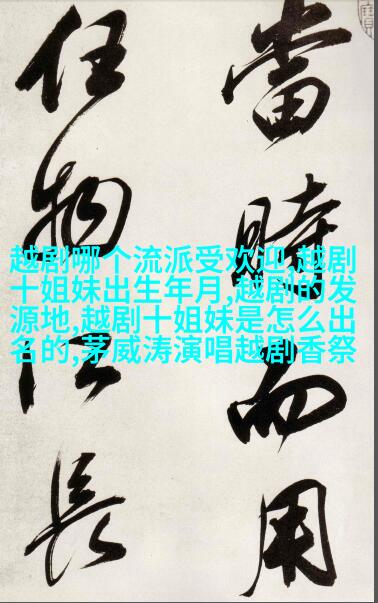 當時而用
任物長
越剧哪个流派受欢迎,越剧
十姐妹出生年月,越剧的发
源地,越剧十姐妹是怎么出
名的,茅威涛演唱越剧香祭